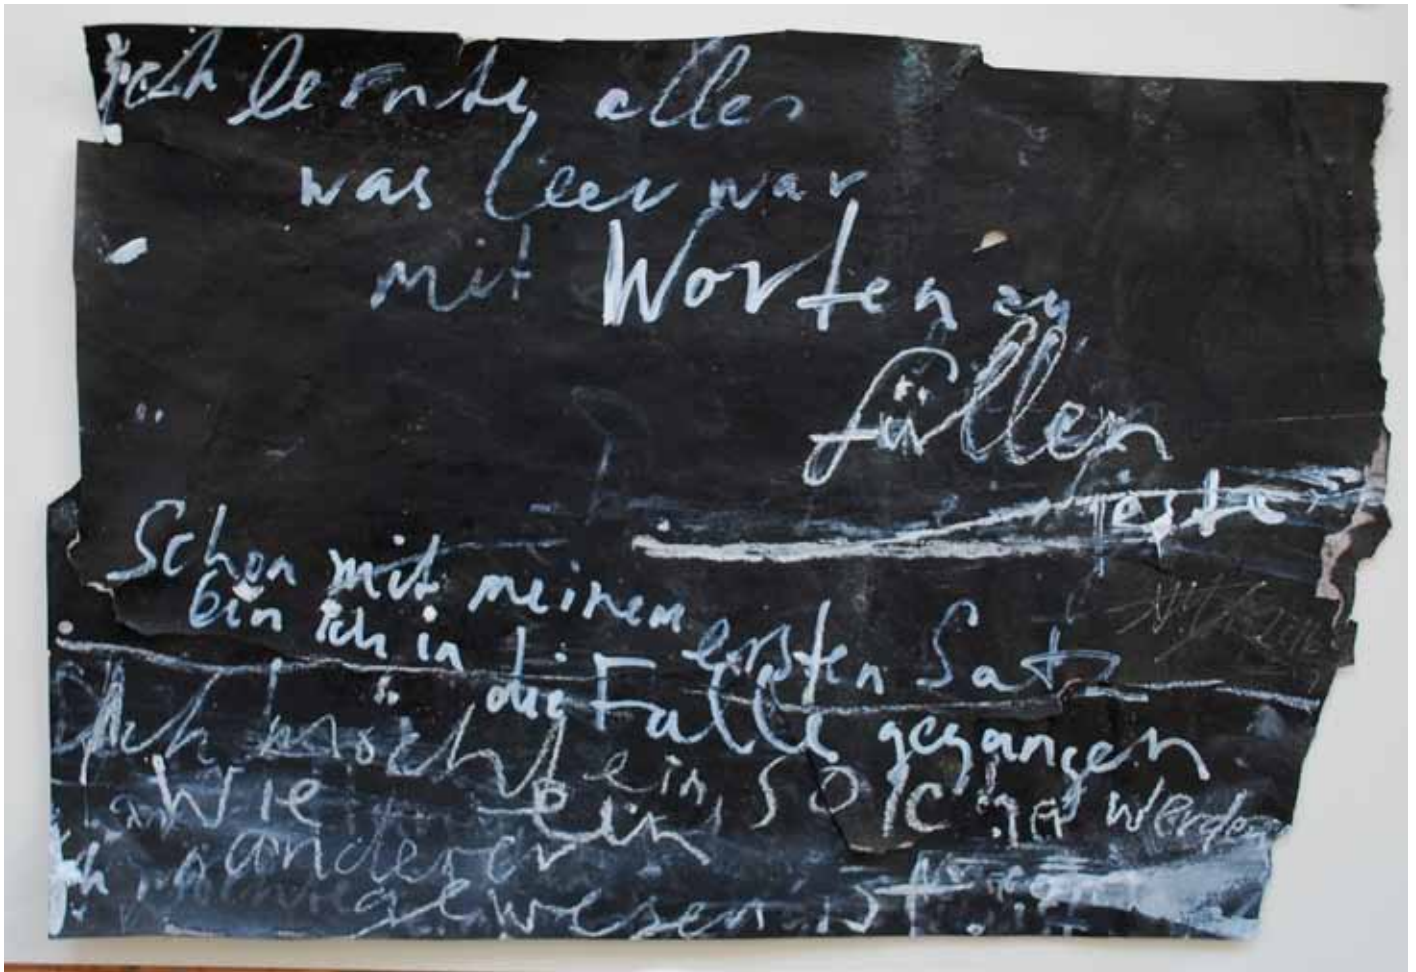 Ich lernte alles
was leer war
mit Worten zu
füllen
Schon mit meinem ersten Satz
bin ich in die Falle gegangen
Ich möcht ein solcher werden
wie ein
anderer
gewesen ist